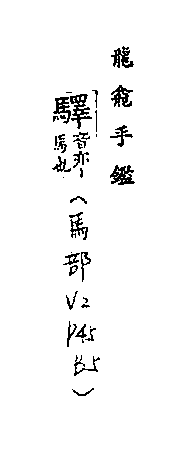 龍龕手鑑
驛音亦馬也(馬部V2P45B5)